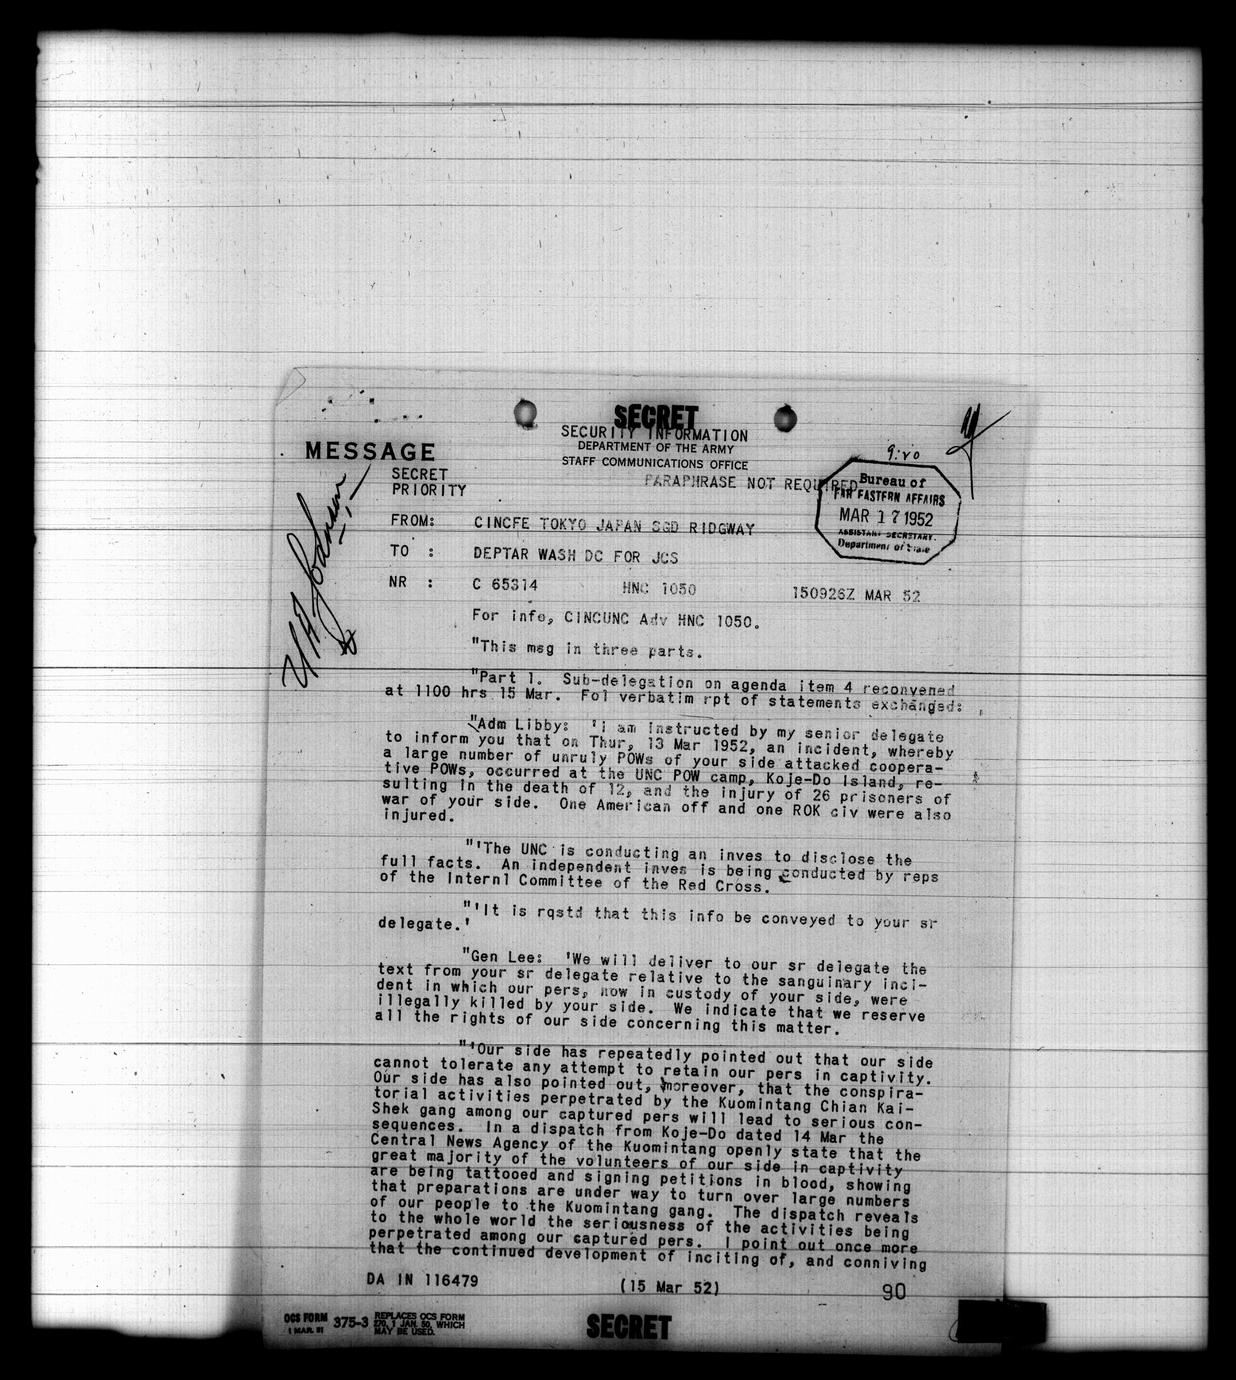 SECRET
SECURITY INFORMATION
DEPARTMENT OF THE ARMY
STAFF COMMUNICATIONS OFFICE
MESSAGE
SECRET
PRIORITY
PARAPHRASE NOT REQUIRED
9:20
Bureau of
FAR EASTERN AFFAIRS
MAR 17 1952
ASSISTANT SECRETARY
Department of State
U A Johnson
FROM: CINCFE TOKYO JAPAN SGD RIDGWAY
TO : DEPTAR WASH DC FOR JCS
NR : C 65314 HNC 1050 150926Z MAR 52
For info, CINCUNC Adv HNC 1050.
"This msg in three parts.
"Part 1. Sub-delegation on agenda item 4 reconvened
at 1100 hrs 15 Mar. Fol verbatim rpt of statements exchanged:
"Adm Libby: 'I am instructed by my senior delegate
to inform you that on Thur, 13 Mar 1952, an incident, whereby
a large number of unruly POWs of your side attacked coopera-
tive POWs, occurred at the UNC POW camp, Koje-Do Island, re-
sulting in the death of 12, and the injury of 26 prisoners of
war of your side. One American off and one ROK civ were also
injured.
"'The UNC is conducting an inves to disclose the
full facts. An independent inves is being conducted by reps
of the Internl Committee of the Red Cross.
"'It is rqstd that this info be conveyed to your sr
delegate.'
"Gen Lee: 'We will deliver to our sr delegate the
text from your sr delegate relative to the sanguinary inci-
dent in which our pers, now in custody of your side, were
illegally killed by your side. We indicate that we reserve
all the rights of our side concerning this matter.
"'Our side has repeatedly pointed out that our side
cannot tolerate any attempt to retain our pers in captivity.
Our side has also pointed out, moreover, that the conspira-
torial activities perpetrated by the Kuomintang Chian Kai-
Shek gang among our captured pers will lead to serious con-
sequences. In a dispatch from Koje-Do dated 14 Mar the
Central News Agency of the Kuomintang openly state that the
great majority of the volunteers of our side in captivity
are being tattooed and signing petitions in blood, showing
that preparations are under way to turn over large numbers
of our people to the Kuomintang gang. The dispatch reveals
to the whole world the seriousness of the activities being
perpetrated among our captured pers. I point out once more
that the continued development of inciting of, and conniving
DA IN 116479 (15 Mar 52) 90
OCS FORM 375-3 REPLACES OCS FORM
1 MAR. 51 270, 1 JAN. 50, WHICH
MAY BE USED.
SECRET